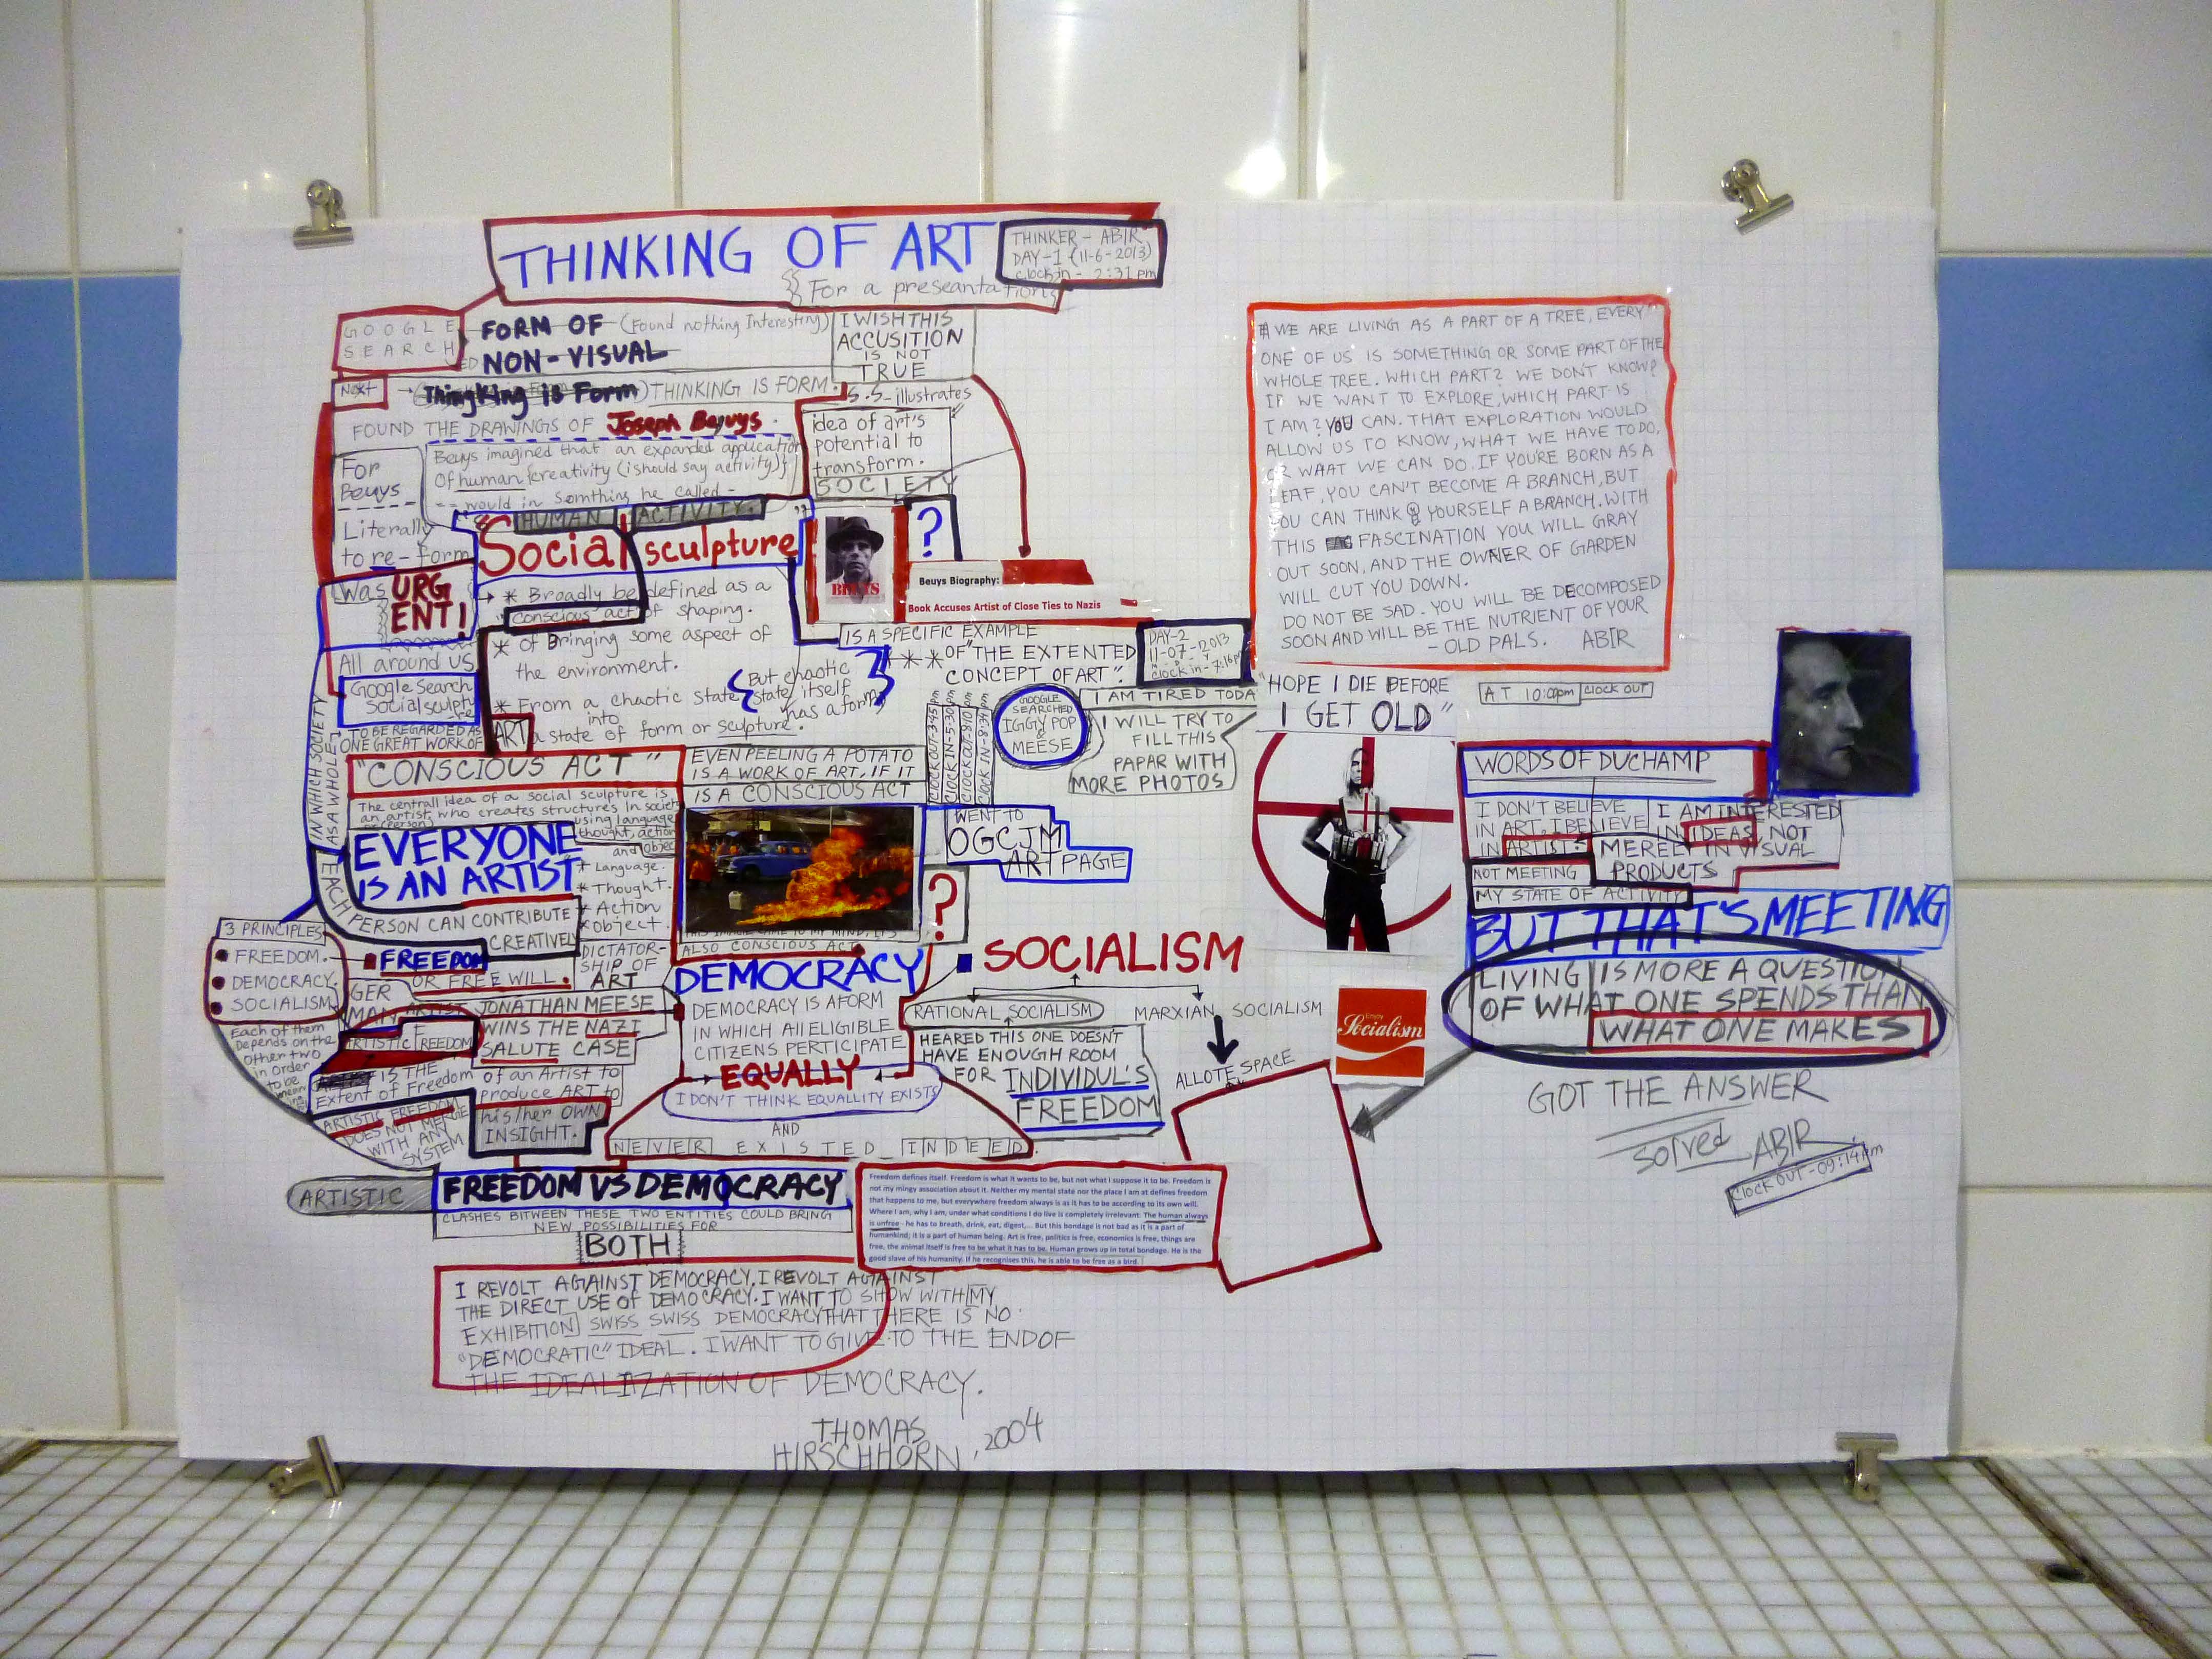 THINKING OF ART
For a preseantation
THINKER - ABIR
DAY-1 (11-6-2013)
Clock in - 2:31 pm
GOOGLE
SEARCHED
FORM OF (Found nothing Interesting)
NON-VISUAL
I WISH THIS
ACCUSITION
IS NOT
TRUE
Next
→ (Thingking is Form) THINKING IS FORM.
FOUND THE DRAWINGS OF Joseph Beuys.
S.S_illustrates
idea of art's
potential to
transform.
SOCIETY
For
Beuys
Literally
to re-form
Beuys imagined that an expanded application
Of human creativity (i should say activity)
would in somthing he called -
HUMAN ACTIVITY.
"Social sculpture"
BEUYS
?
Beuys Biography:
Book Accuses Artist of Close Ties to Nazis
Was URG
ENT!
* Broadly be defined as a
conscious act of shaping.
* of Bringing some aspect of
the environment.
* From a chaotic state
into
a state of form or sculpture.
But chaotic
state itself
has a form
IS A SPECIFIC EXAMPLE
***OF "THE EXTENTED
CONCEPT OF ART".
DAY-2
11-07-2013
clock in - 7:16 pm
All around us
Google Search
Social sculptu
-re
TO BE REGARDED AS
ONE GREAT WORK OF
ART
IN WHICH SOCIETY
AS A WHOLE
CLOCK OUT-3:45 pm
CLOCK IN-5:30 pm
CLOCK OUT-8:10 pm
CLOCK IN-8:34 pm
GOOGLE
SEARCHED
IGGY POP
&
MEESE
I AM TIRED TODA
I WILL TRY TO
FILL THIS
PAPAR WITH
MORE PHOTOS
"CONSCIOUS ACT"
EVEN PEELING A POTATO
IS A WORK OF ART, IF IT
IS A CONSCIOUS ACT
The centrall idea of a social sculpture is
an artist, who creates structures In society
(person)
using language
thought, action
and object
EVERYONE
IS AN ARTIST"
* Language.
* Thought.
* Action
* object.
EACH PERSON CAN CONTRIBUTE
CREATIVELY
WENT TO
OGCJM
ART PAGE
?
ALSO CONSCIOUS ACT
3 PRINCIPLES
FREEDOM.
DEMOCRACY.
SOCIALISM.
Each of them
Depends on the
other two
in order
to be
FREEDOM
OR FREE WILL.
DICTATOR-
SHIP OF
ART
GER
MAN ARTIST JONATHAN MEESE
WINS THE NAZI
SALUTE CASE
ARTISTIC FREEDOM
IS THE
Extent of Freedom of an Artist to
produce ART to
his/her OWN
INSIGHT.
ARTISTIC FREEDOM
DOES NOT MERGE
WITH ANY
SYSTEM
DEMOCRACY
DEMOCRACY IS A FORM
IN WHICH All ELIGIBLE
CITIZENS PERTICIPATE
EQUALLY
I DON'T THINK EQUALLITY EXISTS
AND
NEVER EXISTED INDEED
SOCIALISM
RATIONAL SOCIALISM
MARXIAN SOCIALISM
HEARED THIS ONE DOESN'T
HAVE ENOUGH ROOM
FOR INDIVIDUL'S
FREEDOM
ALLOTE SPACE
Enjoy
Socialism
ARTISTIC
FREEDOM VS DEMOCRACY
CLASHES BITWEEN THESE TWO ENTITIES COULD BRING
NEW POSSIBILITIES FOR
BOTH
Freedom defines itself. Freedom is what it wants to be, but not what I suppose it to be. Freedom is
not my mingy association about it. Neither my mental state nor the place I am at defines freedom
that happens to me, but everywhere freedom always is as it has to be according to its own will.
Where I am, why I am, under what conditions I do live is completely irrelevant. The human always
is unfree - he has to breath, drink, eat, digest,... But this bondage is not bad as it is a part of
humankind; it is a part of human being. Art is free, politics is free, economics is free, things are
free, the animal itself is free to be what it has to be. Human grows up in total bondage. He is the
good slave of his humanity. If he recognises this, he is able to be free as a bird.
I REVOLT AGAINST DEMOCRACY. I REVOLT AGAINST
THE DIRECT USE OF DEMOCRACY. I WANT TO SHOW WITH MY
EXHIBITION SWISS SWISS DEMOCRACY THAT THERE IS NO
"DEMOCRATIC" IDEAL. I WANT TO GIVE TO THE END OF
THE IDEALIZATION OF DEMOCRACY.
THOMAS
HIRSCHHORN, 2004
WE ARE LIVING AS A PART OF A TREE, EVERY
ONE OF US IS SOMETHING OR SOME PART OF THE
WHOLE TREE. WHICH PART? WE DONT KNOW?
IF WE WANT TO EXPLORE, WHICH PART IS
I AM? YOU CAN. THAT EXPLORATION WOULD
ALLOW US TO KNOW, WHAT WE HAVE TO DO,
OR WHAT WE CAN DO. IF YOU'RE BORN AS A
LEAF, YOU CAN'T BECOME A BRANCH, BUT
YOU CAN THINK YOURSELF A BRANCH. WITH
THIS FASCINATION YOU WILL GRAY
OUT SOON, AND THE OWNER OF GARDEN
WILL CUT YOU DOWN.
DO NOT BE SAD. YOU WILL BE DECOMPOSED
SOON AND WILL BE THE NUTRIENT OF YOUR
- OLD PALS. ABIR
"HOPE I DIE BEFORE
I GET OLD"
AT 10:00pm CLOCK OUT
WORDS OF DUCHAMP
I DON'T BELIEVE
IN ART, I BELIEVE
IN ARTIST.
I AM INTERESTED
IN IDEAS, NOT
MERELY IN VISUAL
PRODUCTS
NOT MEETING
MY STATE OF ACTIVITY
BUT THAT'S MEETING
LIVING IS MORE A QUESTION
OF WHAT ONE SPENDS THAN
WHAT ONE MAKES
GOT THE ANSWER
Solved ABIR
CLOCK OUT - 09:14 pm